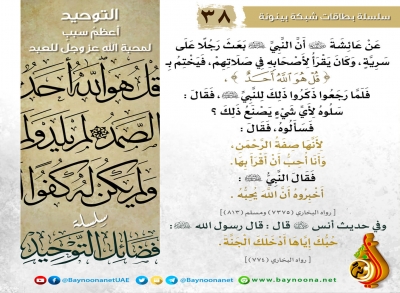 سلسلة بطاقات شبكة بينونة
٣٨
التوحيد
أعظم سبب
لمحبة الله عز وجل للعبد
عَنْ عَائِشَةَ ﷺ أَنَّ النَّبِيَّ ﷺ بَعَثَ رَجُلًا عَلَى
سَرِيَّةٍ، وَكَانَ يَقْرَأُ لِأَصْحَابِهِ فِي صَلَاتِهِمْ، فَيَخْتِمُ بِـ
﴿ قُلْ هُوَ اللَّهُ أَحَدٌ ﴾ .
فَلَمَّا رَجَعُوا ذَكَرُوا ذَلِكَ لِلنَّبِيِّ ﷺ، فَقَالَ :
سَلُوهُ لِأَيِّ شَيْءٍ يَصْنَعُ ذَلِكَ ؟
فَسَأَلُوهُ، فَقَالَ :
لِأَنَّهَا صِفَةُ الرَّحْمَنِ،
وَأَنَا أُحِبُّ أَنْ أَقْرَأَ بِهَا.
فَقَالَ النَّبِيُّ ﷺ :
أَخْبِرُوهُ أَنَّ اللَّهَ يُحِبُّهُ .
[ رواه البخاري (٧٣٧٥) ومسلم (٨١٣) ]
وفي حديث أنس قال : قال رسول الله ﷺ :
حُبُّكَ إِيَّاهَا أَدْخَلَكَ الجَنَّةَ .
[ رواه البخاري (٧٧٤) ]
قل هو الله أحد
الصمد لم يلد ول
ولم يكن له كفوا
سلسلة
فضائل التوحيد
@BaynoonanetUAE
@Baynoonanet
www.baynoona.net